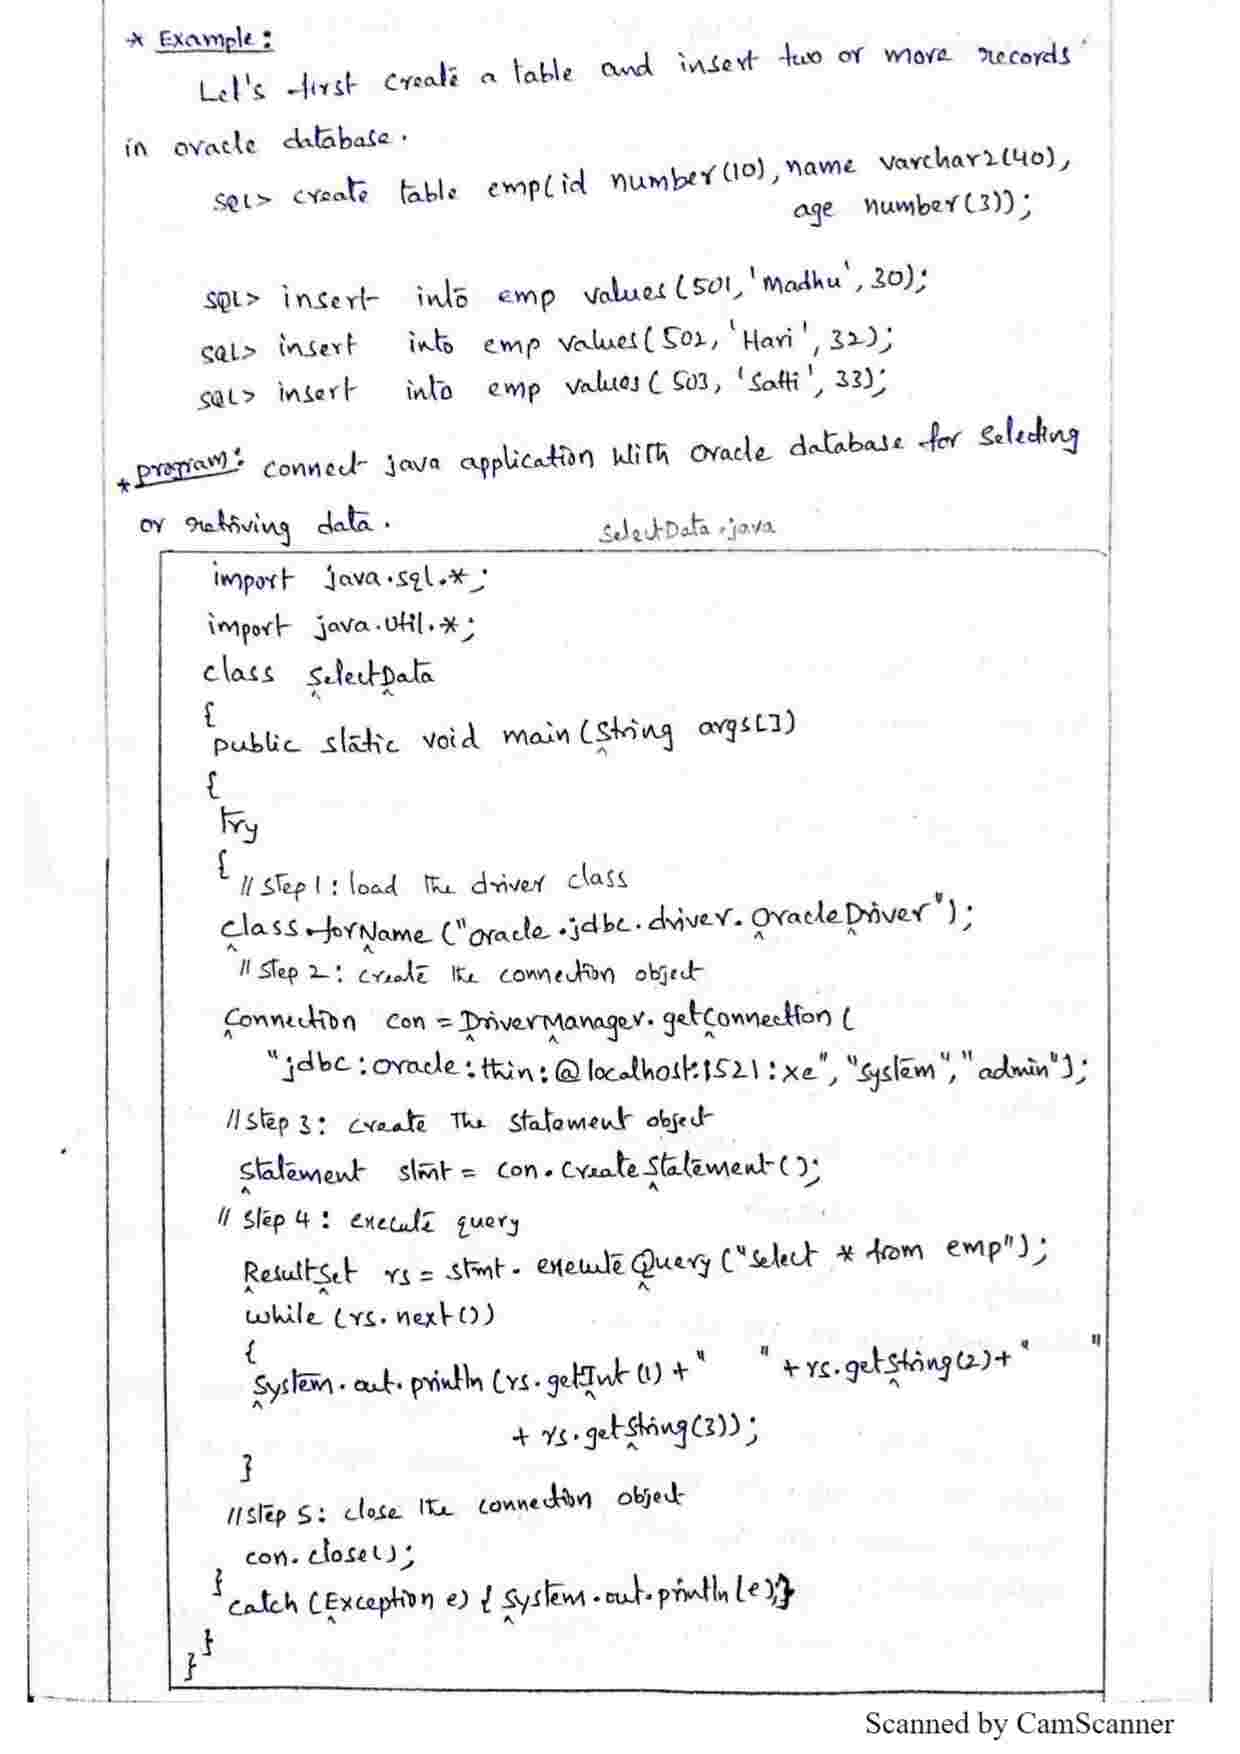 * Example:
Let's first create a table and insert two or more records
in oracle database.
SQL> create table emp(id number(10), name varchar2(40),
age number(3));
SQL> insert into emp values(501, 'Madhu', 30);
SQL> insert into emp values(502, 'Hari', 32);
SQL> insert into emp values(503, 'Satti', 33);
* program: connect java application with oracle database for selecting
or retriving data.
SelectData.java
import java.sql.*;
import java.util.*;
class SelectData
{
public static void main(String args[])
{
try
{
//step 1: load the driver class
Class.forName("oracle.jdbc.driver.OracleDriver");
//step 2: create the connection object
Connection con = DriverManager.getConnection(
"jdbc:oracle:thin:@localhost:1521:xe", "system", "admin");
//step 3: create the statement object
Statement stmt = con.createStatement();
//step 4: execute query
ResultSet rs = stmt.executeQuery("select * from emp");
while (rs.next())
{
System.out.println(rs.getInt(1)+"    "+rs.getString(2)+"    "
+ rs.getString(3));
}
//step 5: close the connection object
con.close();
}
catch (Exception e) { System.out.println(e);}
}
}
Scanned by CamScanner